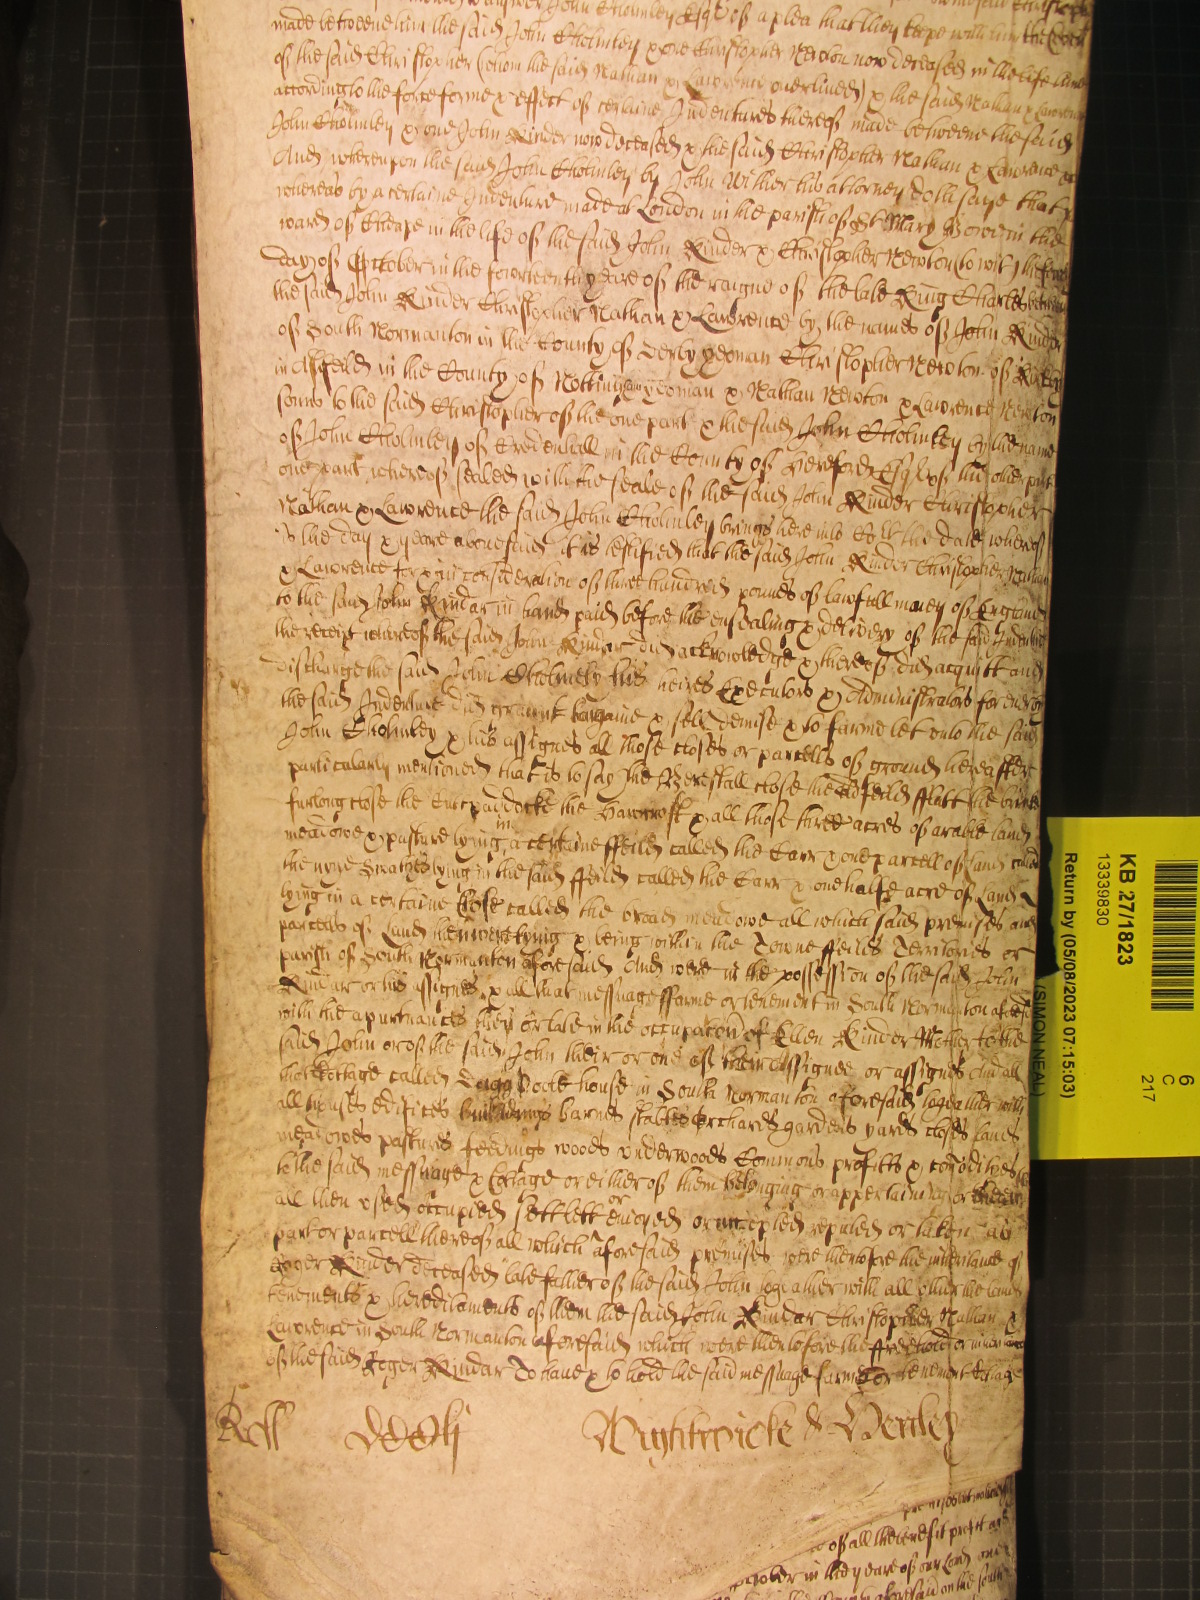 to answer John Cholmley Esqr of a plea that they keepe with him the Covent
made betweene him the said John Cholmley & one Christopher Newton now deceased in the life time
of the said Christopher (whom the said Nathan & Lawrence overlived) & the said Nathan & Lawrence
according to the force forme & effect of certaine Indentures thereof made betweene the said
John Cholmley & one John Kinder now deceased & the said Christopher Nathan & Lawrence &c
And whereupon the said John Cholmley by John Wither his attorney doth saye that
whereas by a certaine Indenture made at London in the parish of St Mary Bow in the
ward of Cheape in the life of the said John Kinder & Christopher Newton to wit the first
day of October in the fowrteenth yeare of the raigne of the late King Charles betweene
the said John Kinder Christopher Nathan & Lawrence by the names of John Kinder
of South Normanton in the County of Derby yeoman Christopher Newton of Kirkby
in Ashfeild in the County of Nottingham yeoman & Nathan Newton & Lawrence Newton
sonns to the said Christopher of the one part & the said John Cholmley by the name
of John Cholmley of Credenhall in the County of Hereford Esqr of the other part
one part whereof sealed with the seale of the said John Kinder Christopher
Nathan & Lawrence the said John Cholmley brings here into Court the date whereof
is the day & yeare abovesaid it is testified that the said John Kinder Christopher Nathan
& Lawrence for & in consideration of three hundred pounds of lawfull money of England
to the said John Kindar in hand paid before the ensealing & delivery of the said Indenture
the receipt whereof the said John Kindar did acknowledge & thereof did acquitt and
discharge the said John Cholmely his heires Executors & Administrators for ever by
the said Indenture did graunt bargaine & sell demise & to farme let unto the said
John Cholmley & his assignes all those closes or parcells of ground hereaffter
particularly mentioned that is to say the Berestall close the feild fflatt the
furlong close the paddocke the & all those three acres of arable land
meadowe & pasture lying in a certaine ffeild called the Carr & one parcell of land called
the nyne Swathes lying in the said ffeild called the Carr & one halfe acre of Land
lying in a certaine Close called the broad meadowe all which said premises and
parcells of Land lying & being within the Towne ffeilds Territories or
parish of South Normanton aforesaid And were in the possession of the said John
Kindar or his assignes & all that messuage ffarme or tenement in South Normanton aforesd
with the apurtnances then or late in the occupacon of Ellen Kinder Mother to the
said John or of the said John their or one of their Assignee or assignes And all
that Cottage called house in South Normanton aforesaid togeather with
all houses edifices buildings barnes stables orchards gardens yards closes lands
meadowes pastures feedings woods underwoods Commons profitts & comodities
to the said messuage & Cottage or either of them belonging or appertaining or
all then used occupied sett lett or enioyed or accepted reputed or taken as
part or parcell thereof all which aforesaid premises were theretofore the inheritance of
Roger Kinder deceased late father of the said John togeather with all other the lands
tenements & hereditaments of them the said John Kindar Christopher Nathan &
Lawrence in South Normanton aforesaid which were theretofore the ffreehold or inheritance
of the said Roger Kindar To have & to hold the said messuage farme or tenement Cottage
Roll
KB 27/1823
13339830
Return by (05/08/2023 07:15:03)
(SIMON NEAL)
6
C
217
of all
October in the yeare of our Lord one
aforesaid